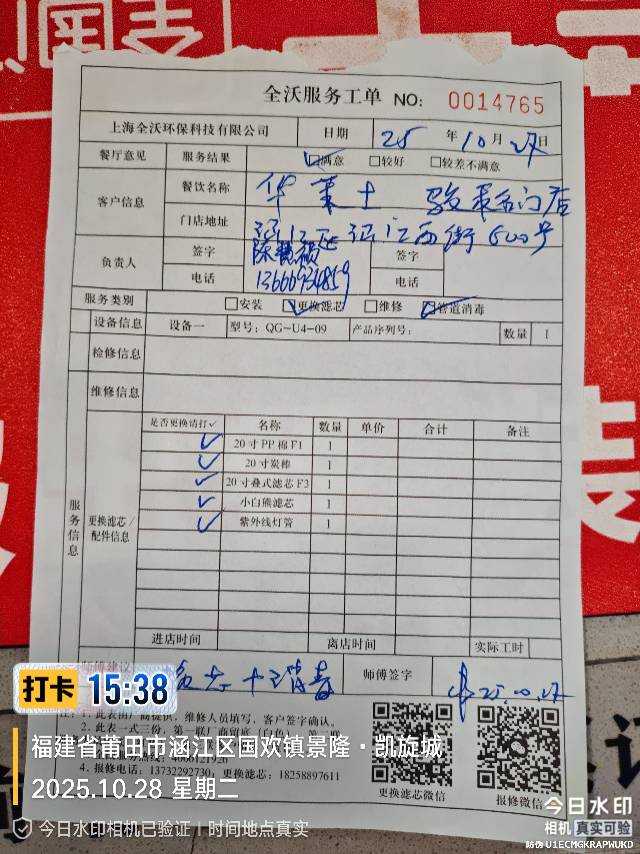 全沃服务工单 NO: 0014765
上海全沃环保科技有限公司 日期 25 年 10 月 27 日
餐厅意见 服务结果 ☑满意 □较好 □较差不满意
客户信息 餐饮名称 华莱士
门店地址 涵江区涵江西街600号
负责人 签字 签字
电话 电话
服务类别 □安装 ☑更换滤芯 □维修 ☑管道消毒
设备信息 设备一 型号: QG-U4-09 产品序列号: 数量 1
检修信息
维修信息
服务信息
更换滤芯/配件信息
是否更换请打✓ 名称 数量 单价 合计 备注
✓ 20寸PP棉F1 1
✓ 20寸炭棒 1
✓ 20寸叠式滤芯F3 1
✓ 小白熊滤芯 1
✓ 紫外线灯管 1
进店时间 离店时间 实际工时
师傅建议 消毒 师傅签字 25.10.27
注: 1. 此表由厂商提供, 维修人员填写, 客户签字确认。
4. 报修电话: 13732292730, 更换滤芯: 18258897611
更换滤芯微信 报修微信
打卡 15:38
福建省莆田市涵江区国欢镇景隆·凯旋城
2025.10.28 星期二
今日水印相机已验证 | 时间地点真实
今日水印
相机 真实可验
防伪 U1ECMGKRAPWUKD